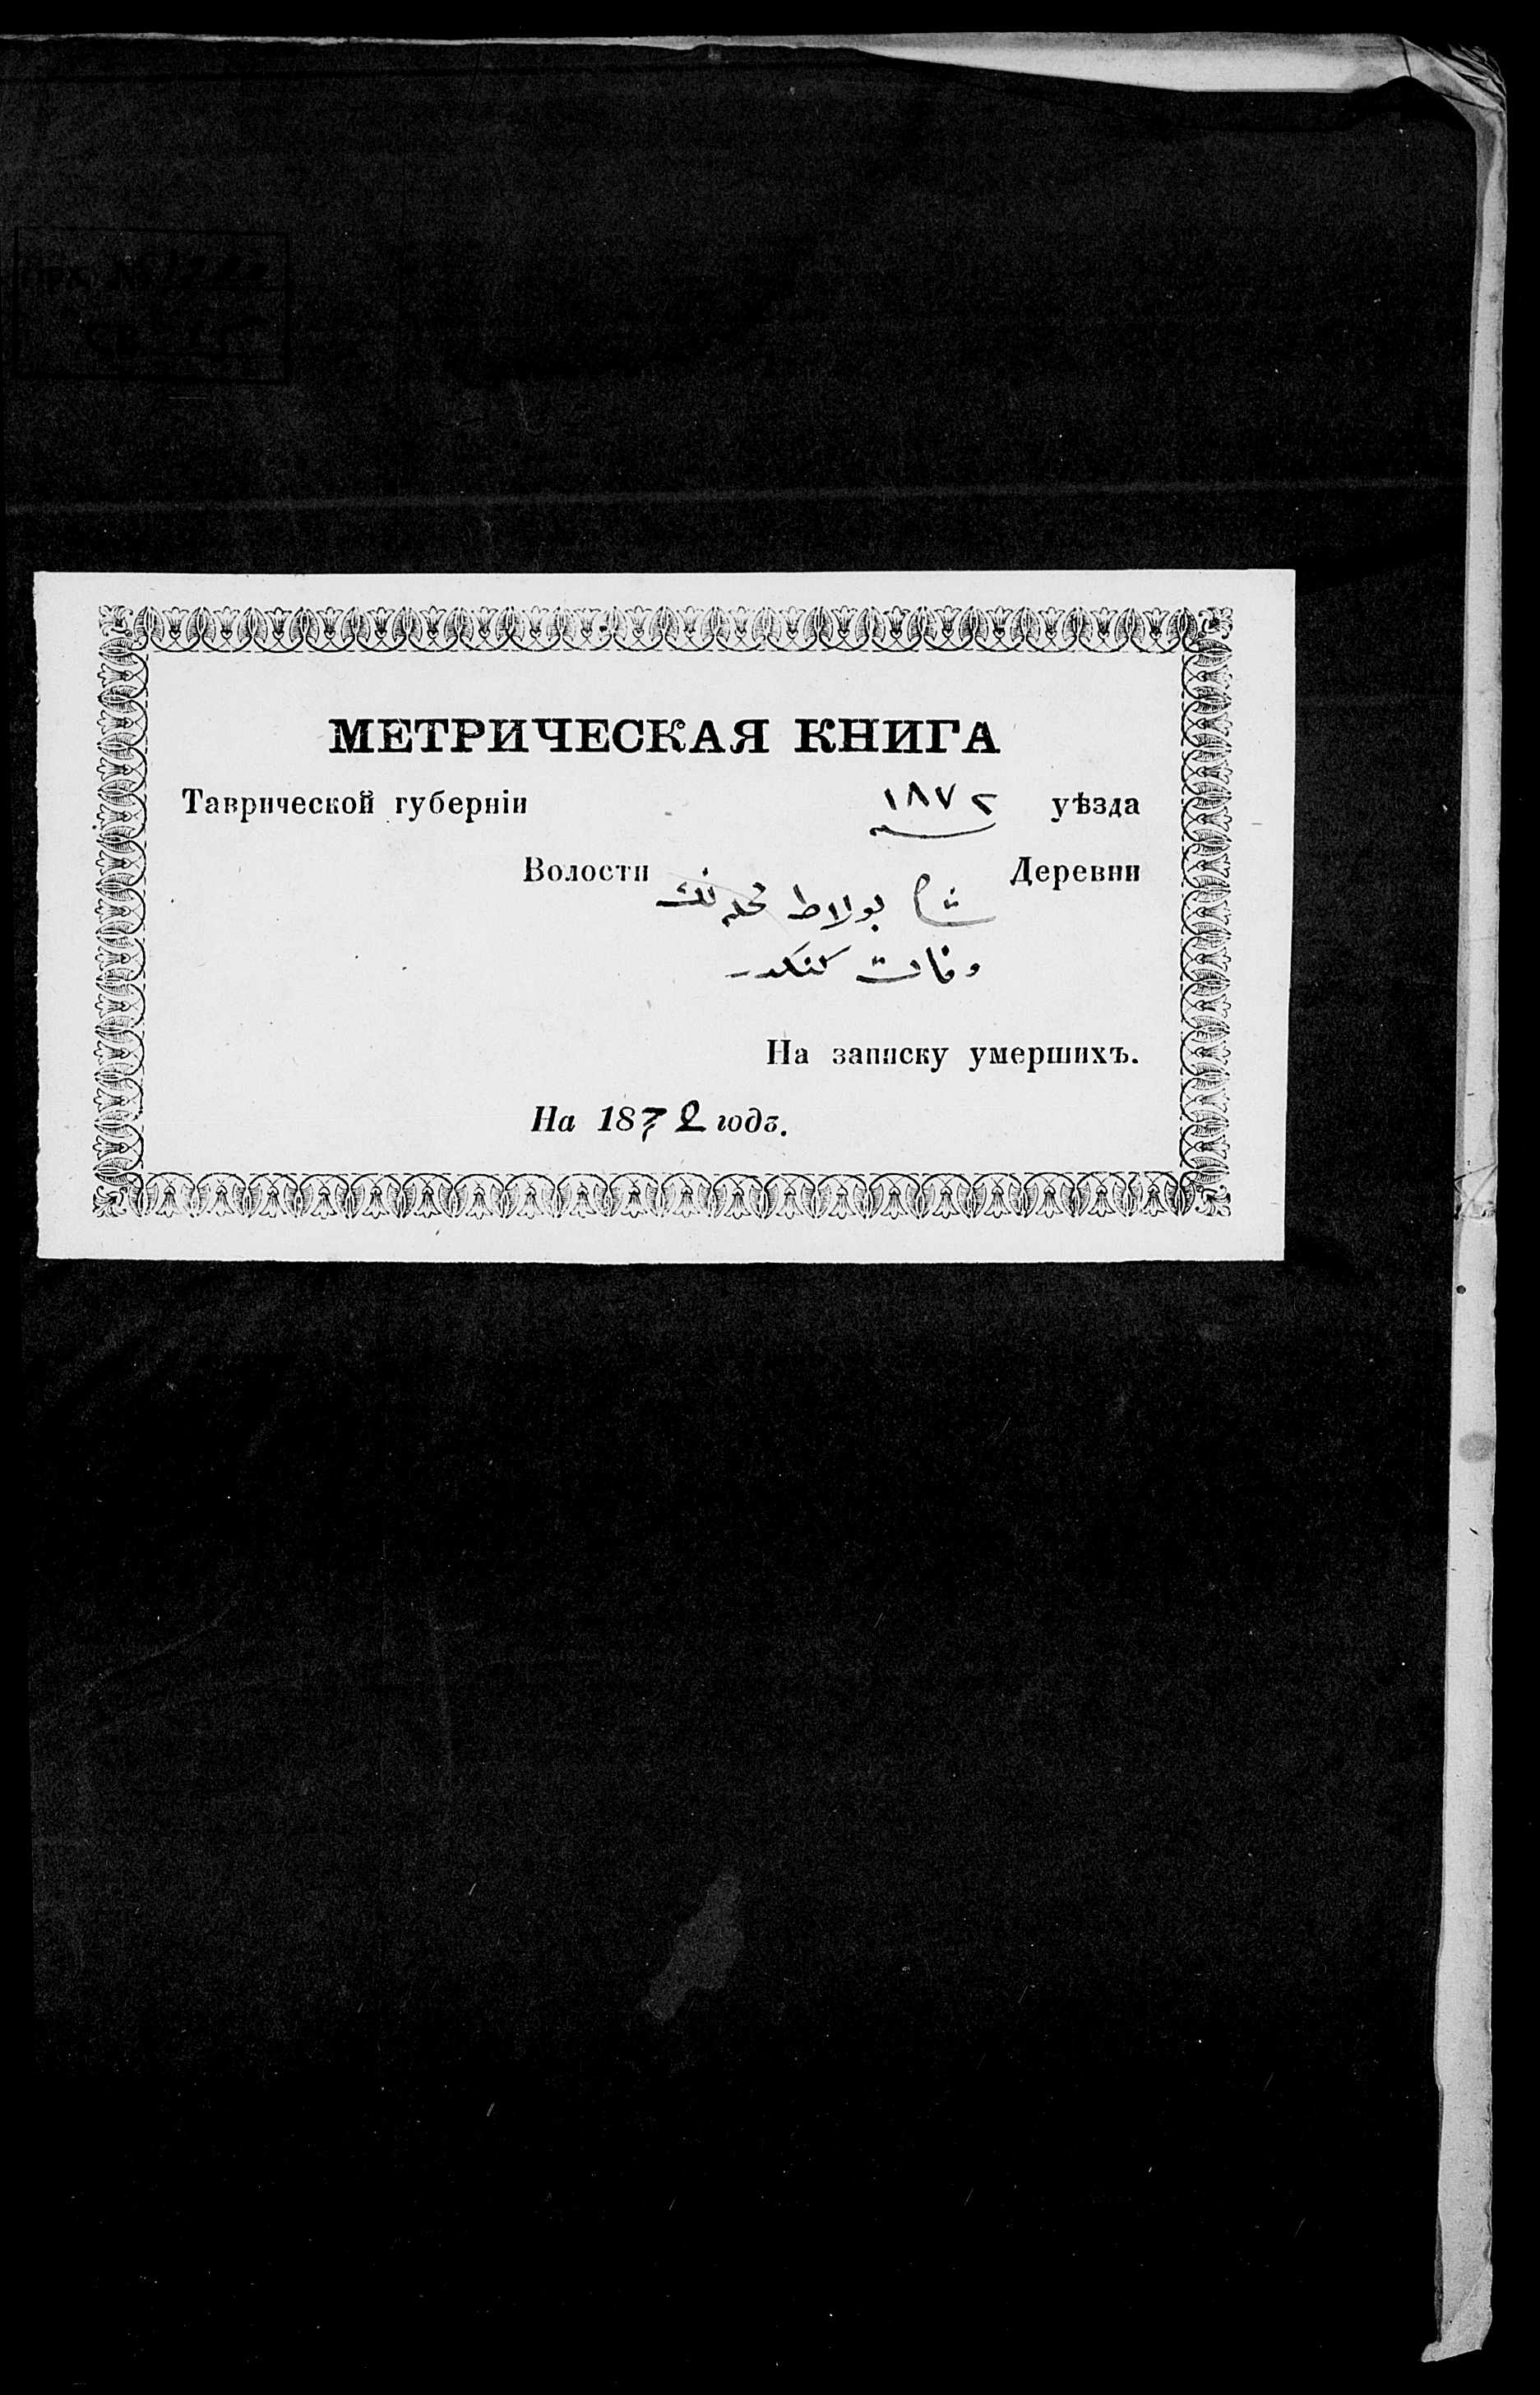 МЕТРИЧЕСКАЯ КНИГА
Таврической губерніи ١٨٧٢ уѣзда
Волости Деревни
بولاط محله نك
وفات
На записку умершихъ.
На 1872 годъ.